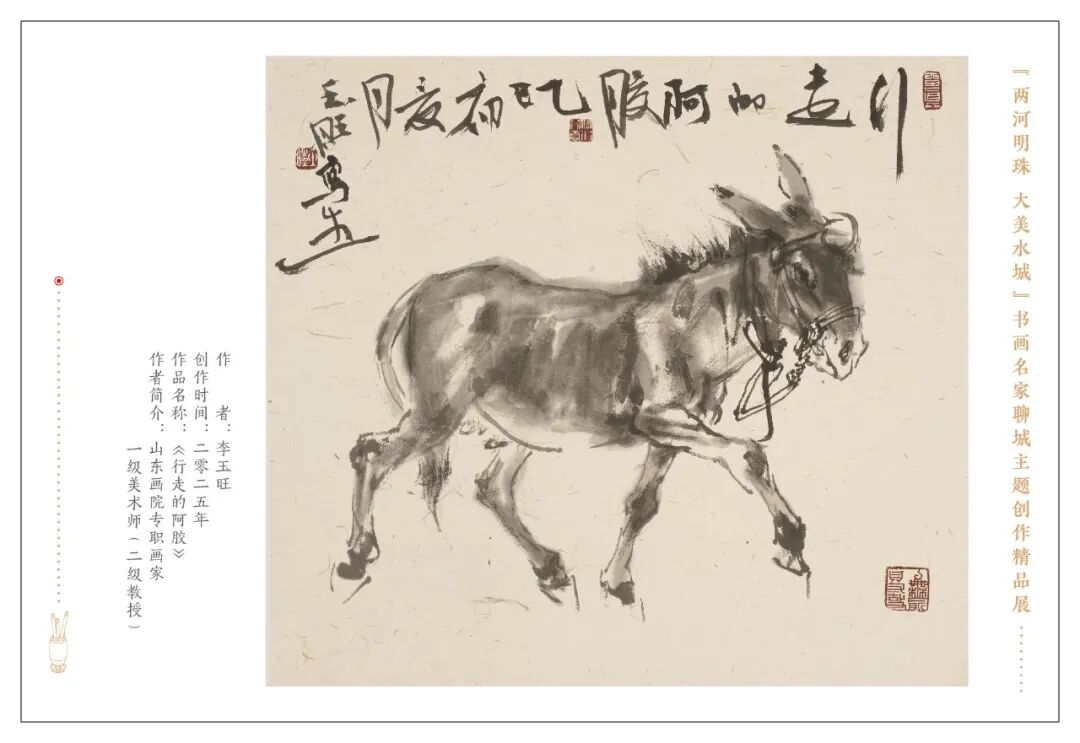 『两河明珠 大美水城』书画名家聊城主题创作精品展
行走的阿胶 乙巳初夏月
玉旺写
作者：李玉旺
创作时间：二零二五年
作品名称：《行走的阿胶》
作者简介：山东画院专职画家
一级美术师（二级教授）